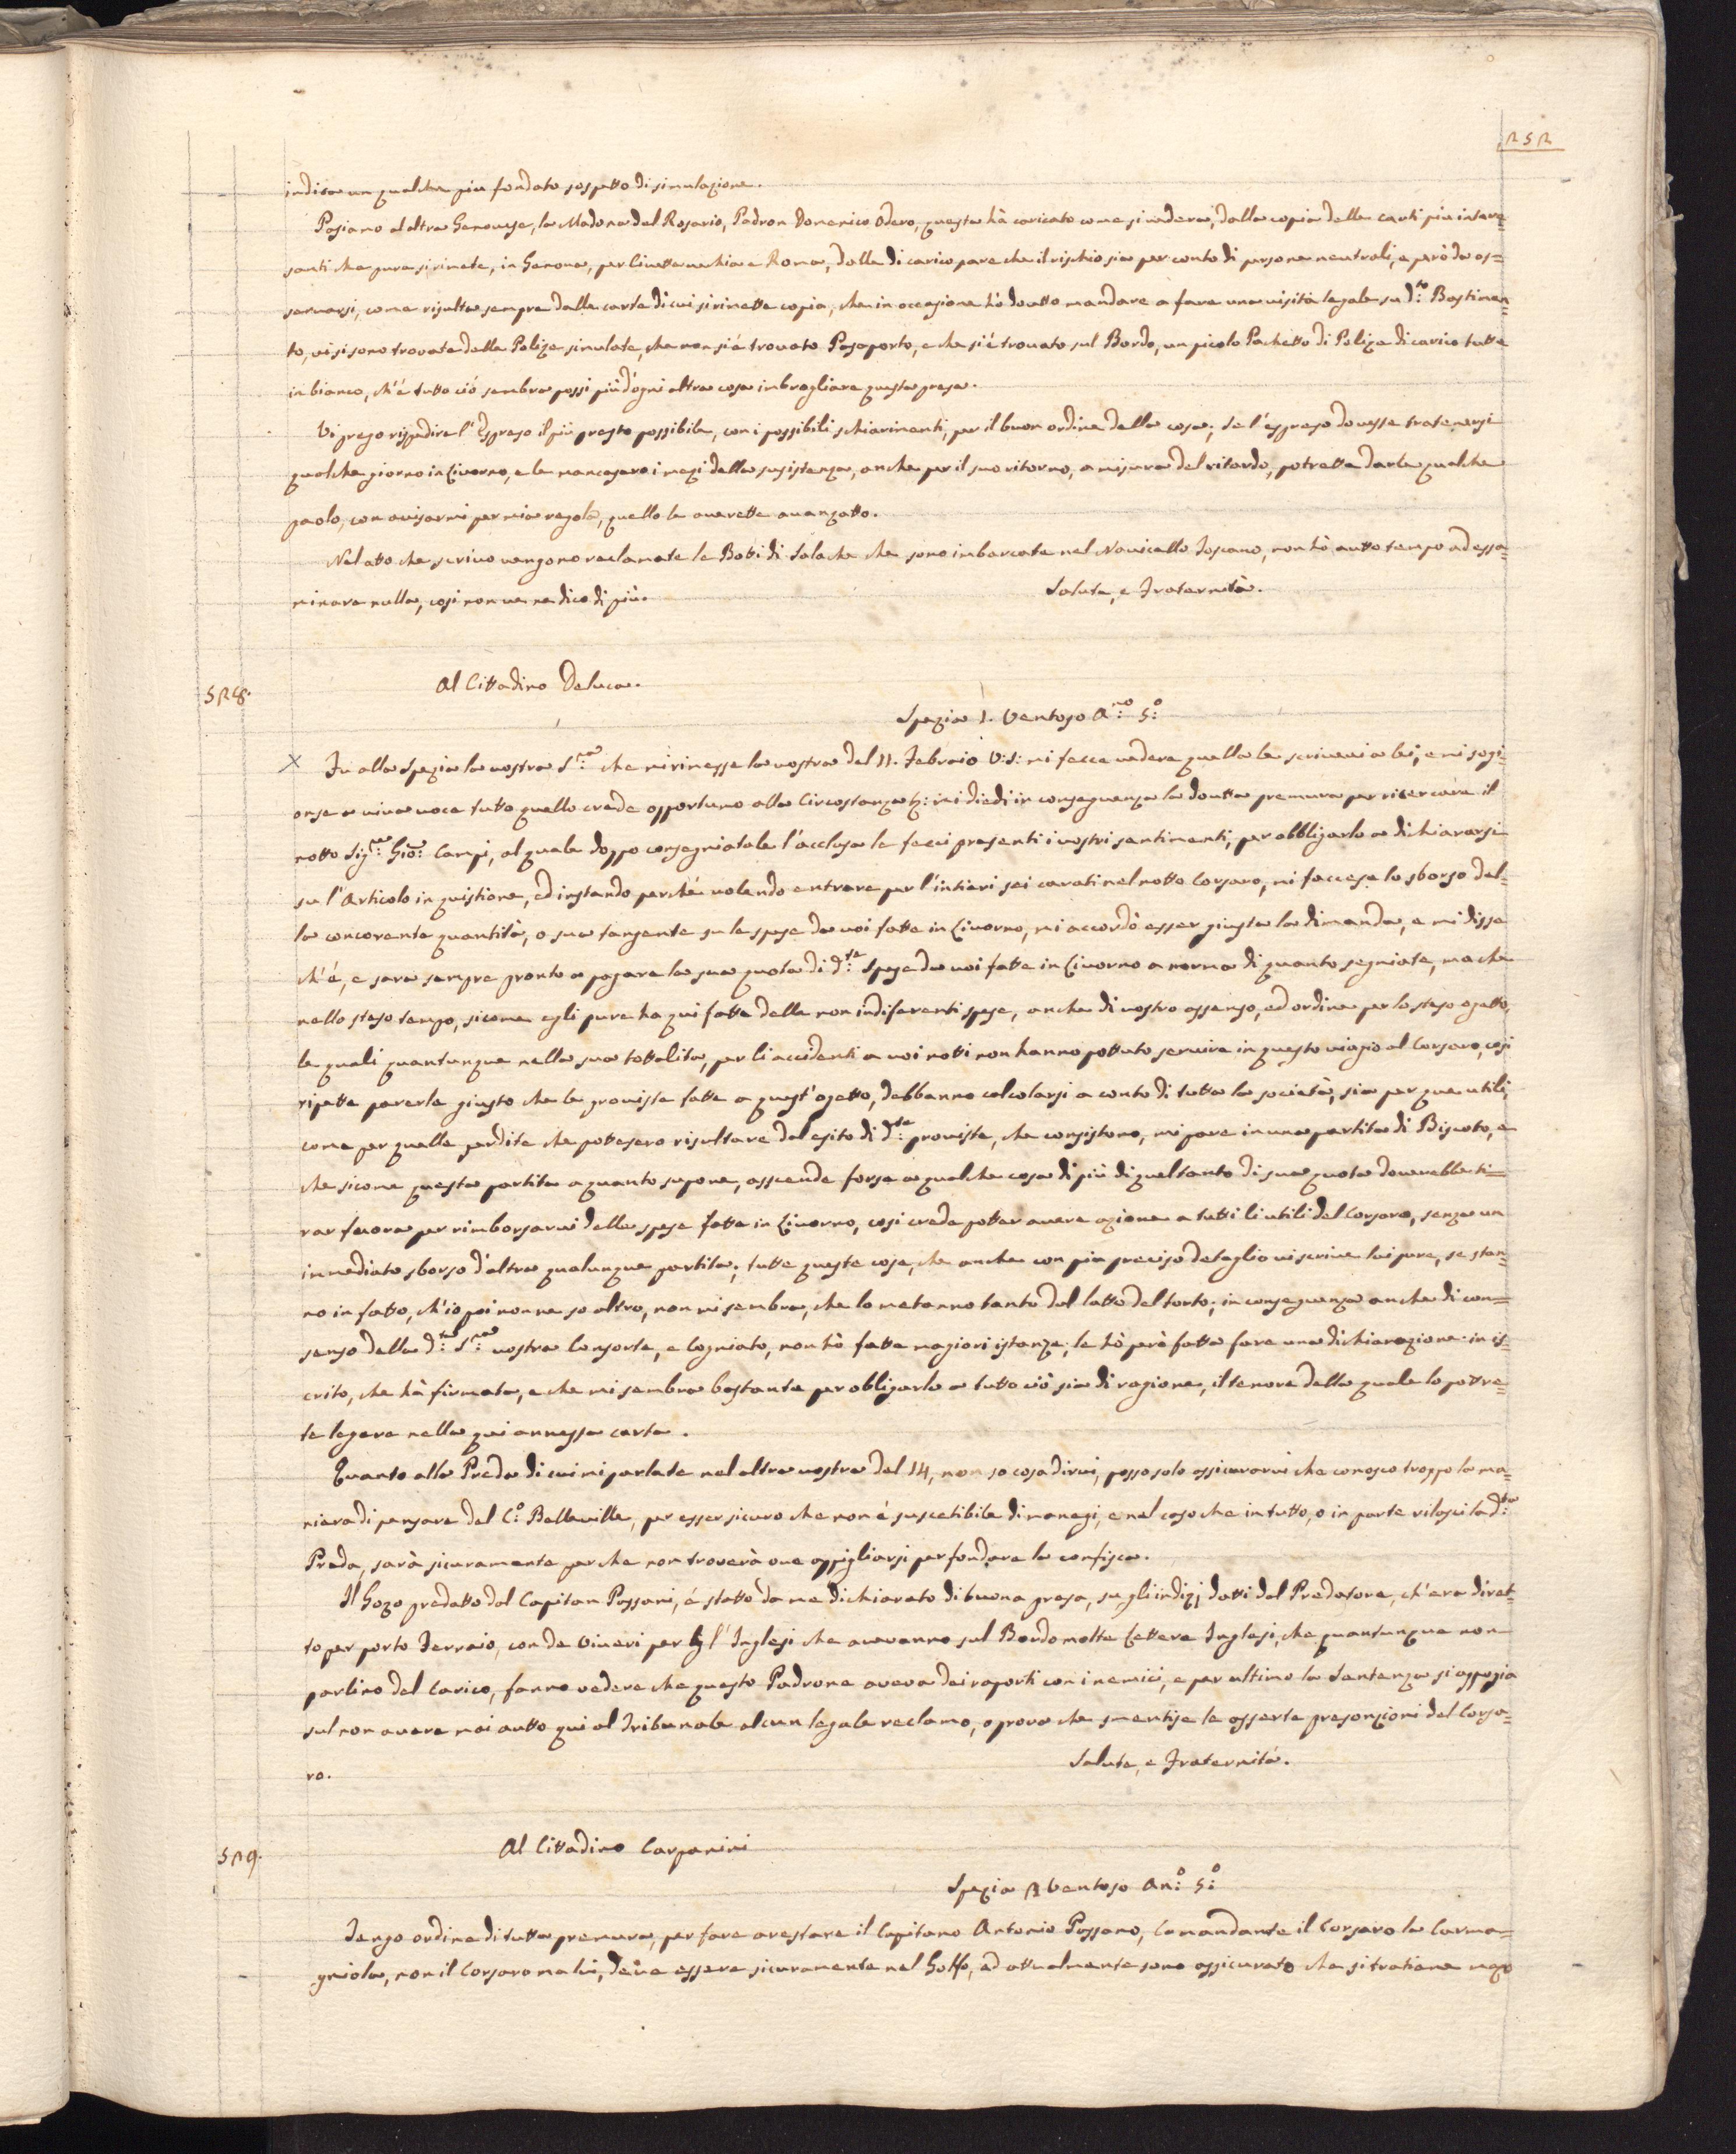 252
indica un qualche piu fondato sospetto di simulazione.
Pasiamo al altra Genovese, la Madona del Rosario, Padron Domenico Odero, questa hà caricato come si vederà, dalla copia delle carti piu intere=
santi che pure si rimete, in Genova, per Civitta vechia e Roma, dalle di carico pare che il rischio sia per conto di persone neutrali, e però da os=
servarsi, come risulta sempre dalle carte di cui si rimette copia, che in occasione hò doutto mandare a fare una visita legale su d:to Bastimen=
to, vi si sono trovate delle Polize simulate, che non si é trovato Pasaporto, e che si é trovato sul Bordo, un picolo Pachetto di Poliza di carico tutte
in bianco, ch'é tutto ció sembra possi più d'ogni altra cosa imbrogliare questa presa.
Vi prego rispedire l'Espreso il più presto possibile, con i possibili schiarimenti, per il buon ordine della cosa; se l'espreso dovesse tratenersi
qualche giorno in Livorno, e le mancasero i mezi della susistenza, anche per il suo ritorno, a misura del ritardo, potrette darle qualche
paolo, con avisarmi per mia regola, quello le averette avanzatto.
Nel atto che scrivo vengono reclamate le Botti di Salache che sono imbarcate nel Navicello Toscano, non hò autto tempo ad essa=
minare nulla, cosi non ve ne dico di più.
Salute, e Fraternità.
528.
Al Cittadino Deluca.
Spezia 1. Ventoso A:no 5:o
X Fu alla Spezia la vostra S:ra che mi rimesse la vostra del 11. Febraio V:S: mi fecce vedere quella le scrivevi a lei, e mi sogi=
onse a viva voce tutto quello crede opportuno alla Circostanza &: mi diedi in conseguenza la doutta premura per ricercare il
notto Sig:re Gio: Campi, al quale doppo consegniatole l'acclusa le fecci presenti i vostri sentimenti, per obbligarlo a dichiararsi
su l'Articolo in quistione, ed instando perché volendo entrare per l'intieri sei carati nel notto Corsaro, mi faccese lo sborso del=
la concorente quantità, o sua tangente su le spese da voi fatte in Livorno, mi accordò esser giusta la dimanda, e mi disse
ch'é, e sara sempre pronto a pagare la sua quota di d:te Spese da voi fatte in Livorno a norma di quanto segniate, ma che
nello steso tempo, sicome egli pure ha qui fatte delle non indiferenti spese, anche di vostro assenso, ed ordine per lo steso ogetto,
le quali quantunque nella sua tottalità, per li accidenti a voi notti non hanno pottuto servire in questo viagio al Corsaro, cosi
ripette parerle giusto che le proviste fatte a quest'ogetto, debbanno calcolarsi a conto di tutta la società, sia per que utili,
come per quelle perdite che pottesero risultare dal esito di d:te proviste, che consistono, mi pare in una partita di Biscoto, e
che sicome questa partita a quanto supone, asscende forse a qualche cosa di più di quel tanto di sua quota dovrebbe ti=
rar fuora per rimborsarvi delle spese fatte in Livorno, cosi crede potter avere azione a tutti li utili del Corsaro, senza un
immediato sborso d'altra qualunque partita; tutte queste cose, che anche con più preciso detaglio vi scrive lui pure, se stan=
no in fatto, ch'io poi non ne so altro, non mi sembra, che lo metanno tanto dal latto del torto; in conseguenza anche di con=
senso della d:ta S:ra vostra Consorte, e Cogniato, non hò fatte magiori istanze; le hò però fatta fare una dichiarazione in is=
crito, che hà firmata, e che mi sembra bastante per obligarlo a tutto ciò sia di ragione, il tenore della quale lo pottre=
te legere nella qui annessa carta.
Quanto alla Preda di cui mi parlate nel altra vostra del 14, non so cosa dirvi, posso solo assicurarvi che conosco troppo la ma=
niera di pensare del C:o Belleville, per esser sicuro che non é suscetibile di manegi, e nel caso che in tutto, o in parte rilasci la d:ta
Preda, sarà sicuramente perche non troverà ove appigliarsi per fondare la confisca.
Il Gozo predatto dal Capitan Possani, é statto da me dichiarato di buona presa, su gli indizj datti dal Predatore, ch'era diret=
to per porto Ferraio, con de Viveri per l'Inglesi che avevanno sul Bordo molte Lettere Inglesi, che quantunque non
parlino del Carico, fanno vedere che questo Padrone aveva dei raporti con i nemici, e per ultimo la Sentenza si appogia
sul non avere mai autto qui al Tribunale alcun legale reclamo, o prova che smentise le asserte presonzioni del Corsa=
ro.
Salute, e Fraternità.
529.
Al Cittadino Carpanini
Spezia 2 Ventoso An:o 5:o
Tengo ordine di tutta premura, per fare arestare il Capitano Antonio Possano, Comandante il Corsaro la Carma=
gniola, non il Corsaro ma lui, deve essere sicuramente nel Golfo, ed attualmente sono assicurato che si tratiene